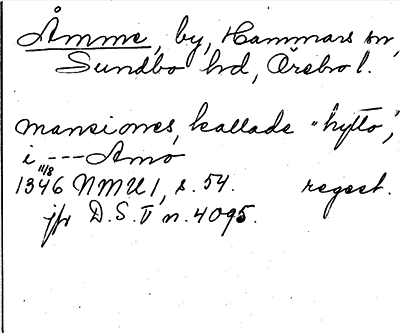 Åmme, by, Hammars sn,
Sundbo hd, Örebro l.
mansiones, kallade "hytto",
i --- Amo
11/8
1346 NMU 1, s. 54. regest.
jfr D.S. V n. 4095.